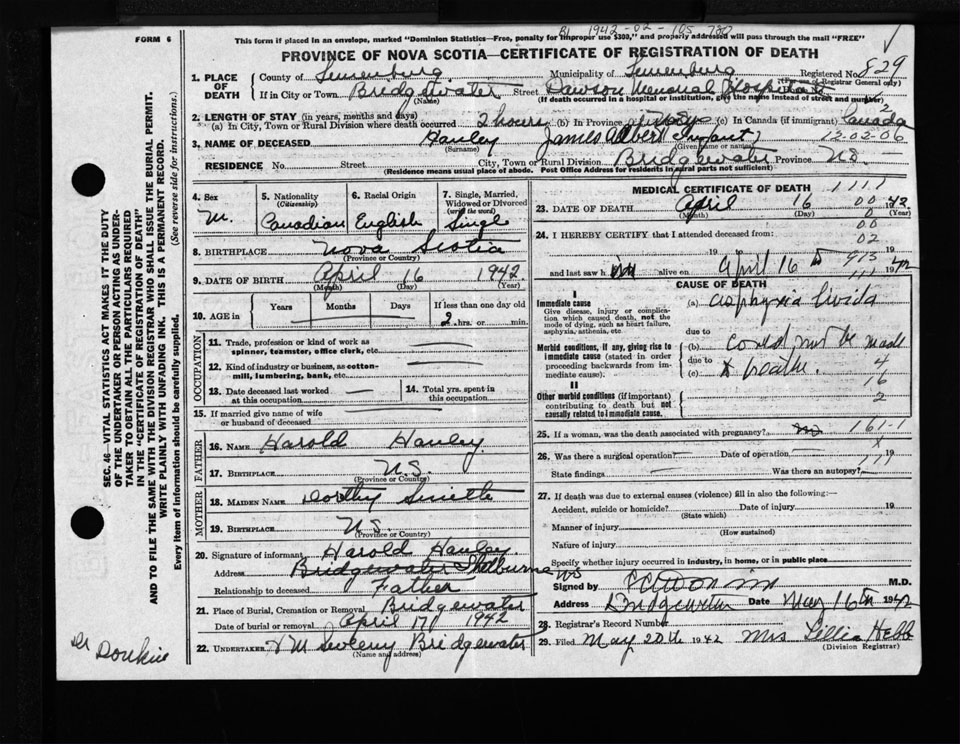 BI 1942-02-105 730
FORM 6 This form if placed in an envelope, marked "Dominion Statistics—Free, penalty for improper use $300," and properly addressed will pass through the mail "FREE"
PROVINCE OF NOVA SCOTIA—CERTIFICATE OF REGISTRATION OF DEATH
1. PLACE OF DEATH County of Lunenburg Municipality of Lunenburg Registered No. 829
(For use of Registrar General only)
If in City or Town Bridgewater Street Dawson Memorial Hospital
(Name) (If death occurred in a hospital or institution, give the name instead of street and number)
2. LENGTH OF STAY (in years, months and days)
(a) In City, Town or Rural Division where death occurred 2 hours (b) In Province (c) In Canada (if immigrant) Canada
3. NAME OF DECEASED Hanley James Albert (Infant) 12-02-06
(Surname) (Given name or names)
RESIDENCE No. Street City, Town or Rural Division Bridgewater Province NS.
(Residence means usual place of abode. Post Office Address for residents in rural parts not sufficient)
4. Sex M. 5. Nationality (Citizenship) Canadian 6. Racial Origin English 7. Single, Married, Widowed or Divorced (write the word) Single
8. BIRTHPLACE Nova Scotia
(Province or Country)
9. DATE OF BIRTH April 16 1942
(Month) (Day) (Year)
10. AGE in Years Months Days If less than one day old
2 hrs. or min.
OCCUPATION
11. Trade, profession or kind of work as spinner, teamster, office clerk, etc.
12. Kind of industry or business, as cotton-mill, lumbering, bank, etc.
13. Date deceased last worked at this occupation 14. Total yrs. spent in this occupation
15. If married give name of wife or husband of deceased
FATHER
16. NAME Harold Hanley
17. BIRTHPLACE N.S.
(Province or Country)
MOTHER
18. MAIDEN NAME Dorthy Smith
19. BIRTHPLACE N.S.
(Province or Country)
20. Signature of informant Harold Hanley
Address Bridgewater Shelburne NS
Relationship to deceased Father
21. Place of Burial, Cremation or Removal Bridgewater
Date of burial or removal April 17 1942
22. UNDERTAKER Bridgewater
(Name and address)
MEDICAL CERTIFICATE OF DEATH 1111
23. DATE OF DEATH April 16 00 1942
(Month) (Day) 0 (Year)
00
24. I HEREBY CERTIFY that I attended deceased from:
02
19 19
and last saw h im alive on April 16 913 1942
111
CAUSE OF DEATH
I
Immediate cause (a) asphyxia livida
Give disease, injury or complication which caused death, not the mode of dying, such as heart failure, asphyxia, asthenia, etc.
due to
Morbid conditions, if any, giving rise to immediate cause (stated in order proceeding backwards from immediate cause). (b) could not be made
due to
(c) to breathe. 4
16
II
Other morbid conditions (if important) contributing to death but not causally related to immediate cause. 2
25. If a woman, was the death associated with pregnancy? no 161-1
X
26. Was there a surgical operation? Date of operation 19
State findings Was there an autopsy?
27. If death was due to external causes (violence) fill in also the following:—
Accident, suicide or homicide? Date of injury 19
(State which)
Manner of injury
(How sustained)
Nature of injury
Specify whether injury occurred in industry, in home, or in public place
Signed by M.D.
Address Bridgewater Date May 16th 1942
28. Registrar's Record Number
29. Filed May 20th 1942 Mrs Lillia Hebb
(Division Registrar)
SEC. 46—VITAL STATISTICS ACT MAKES IT THE DUTY
OF THE UNDERTAKER OR PERSON ACTING AS UNDER-
TAKER TO OBTAIN ALL THE PARTICULARS REQUIRED
IN THE "CERTIFICATE OF REGISTRATION OF DEATH"
AND TO FILE THE SAME WITH THE DIVISION REGISTRAR WHO SHALL ISSUE THE BURIAL PERMIT.
WRITE PLAINLY WITH UNFADING INK. THIS IS A PERMANENT RECORD.
Every item of information should be carefully supplied. (See reverse side for instructions.)
Dr Donkin